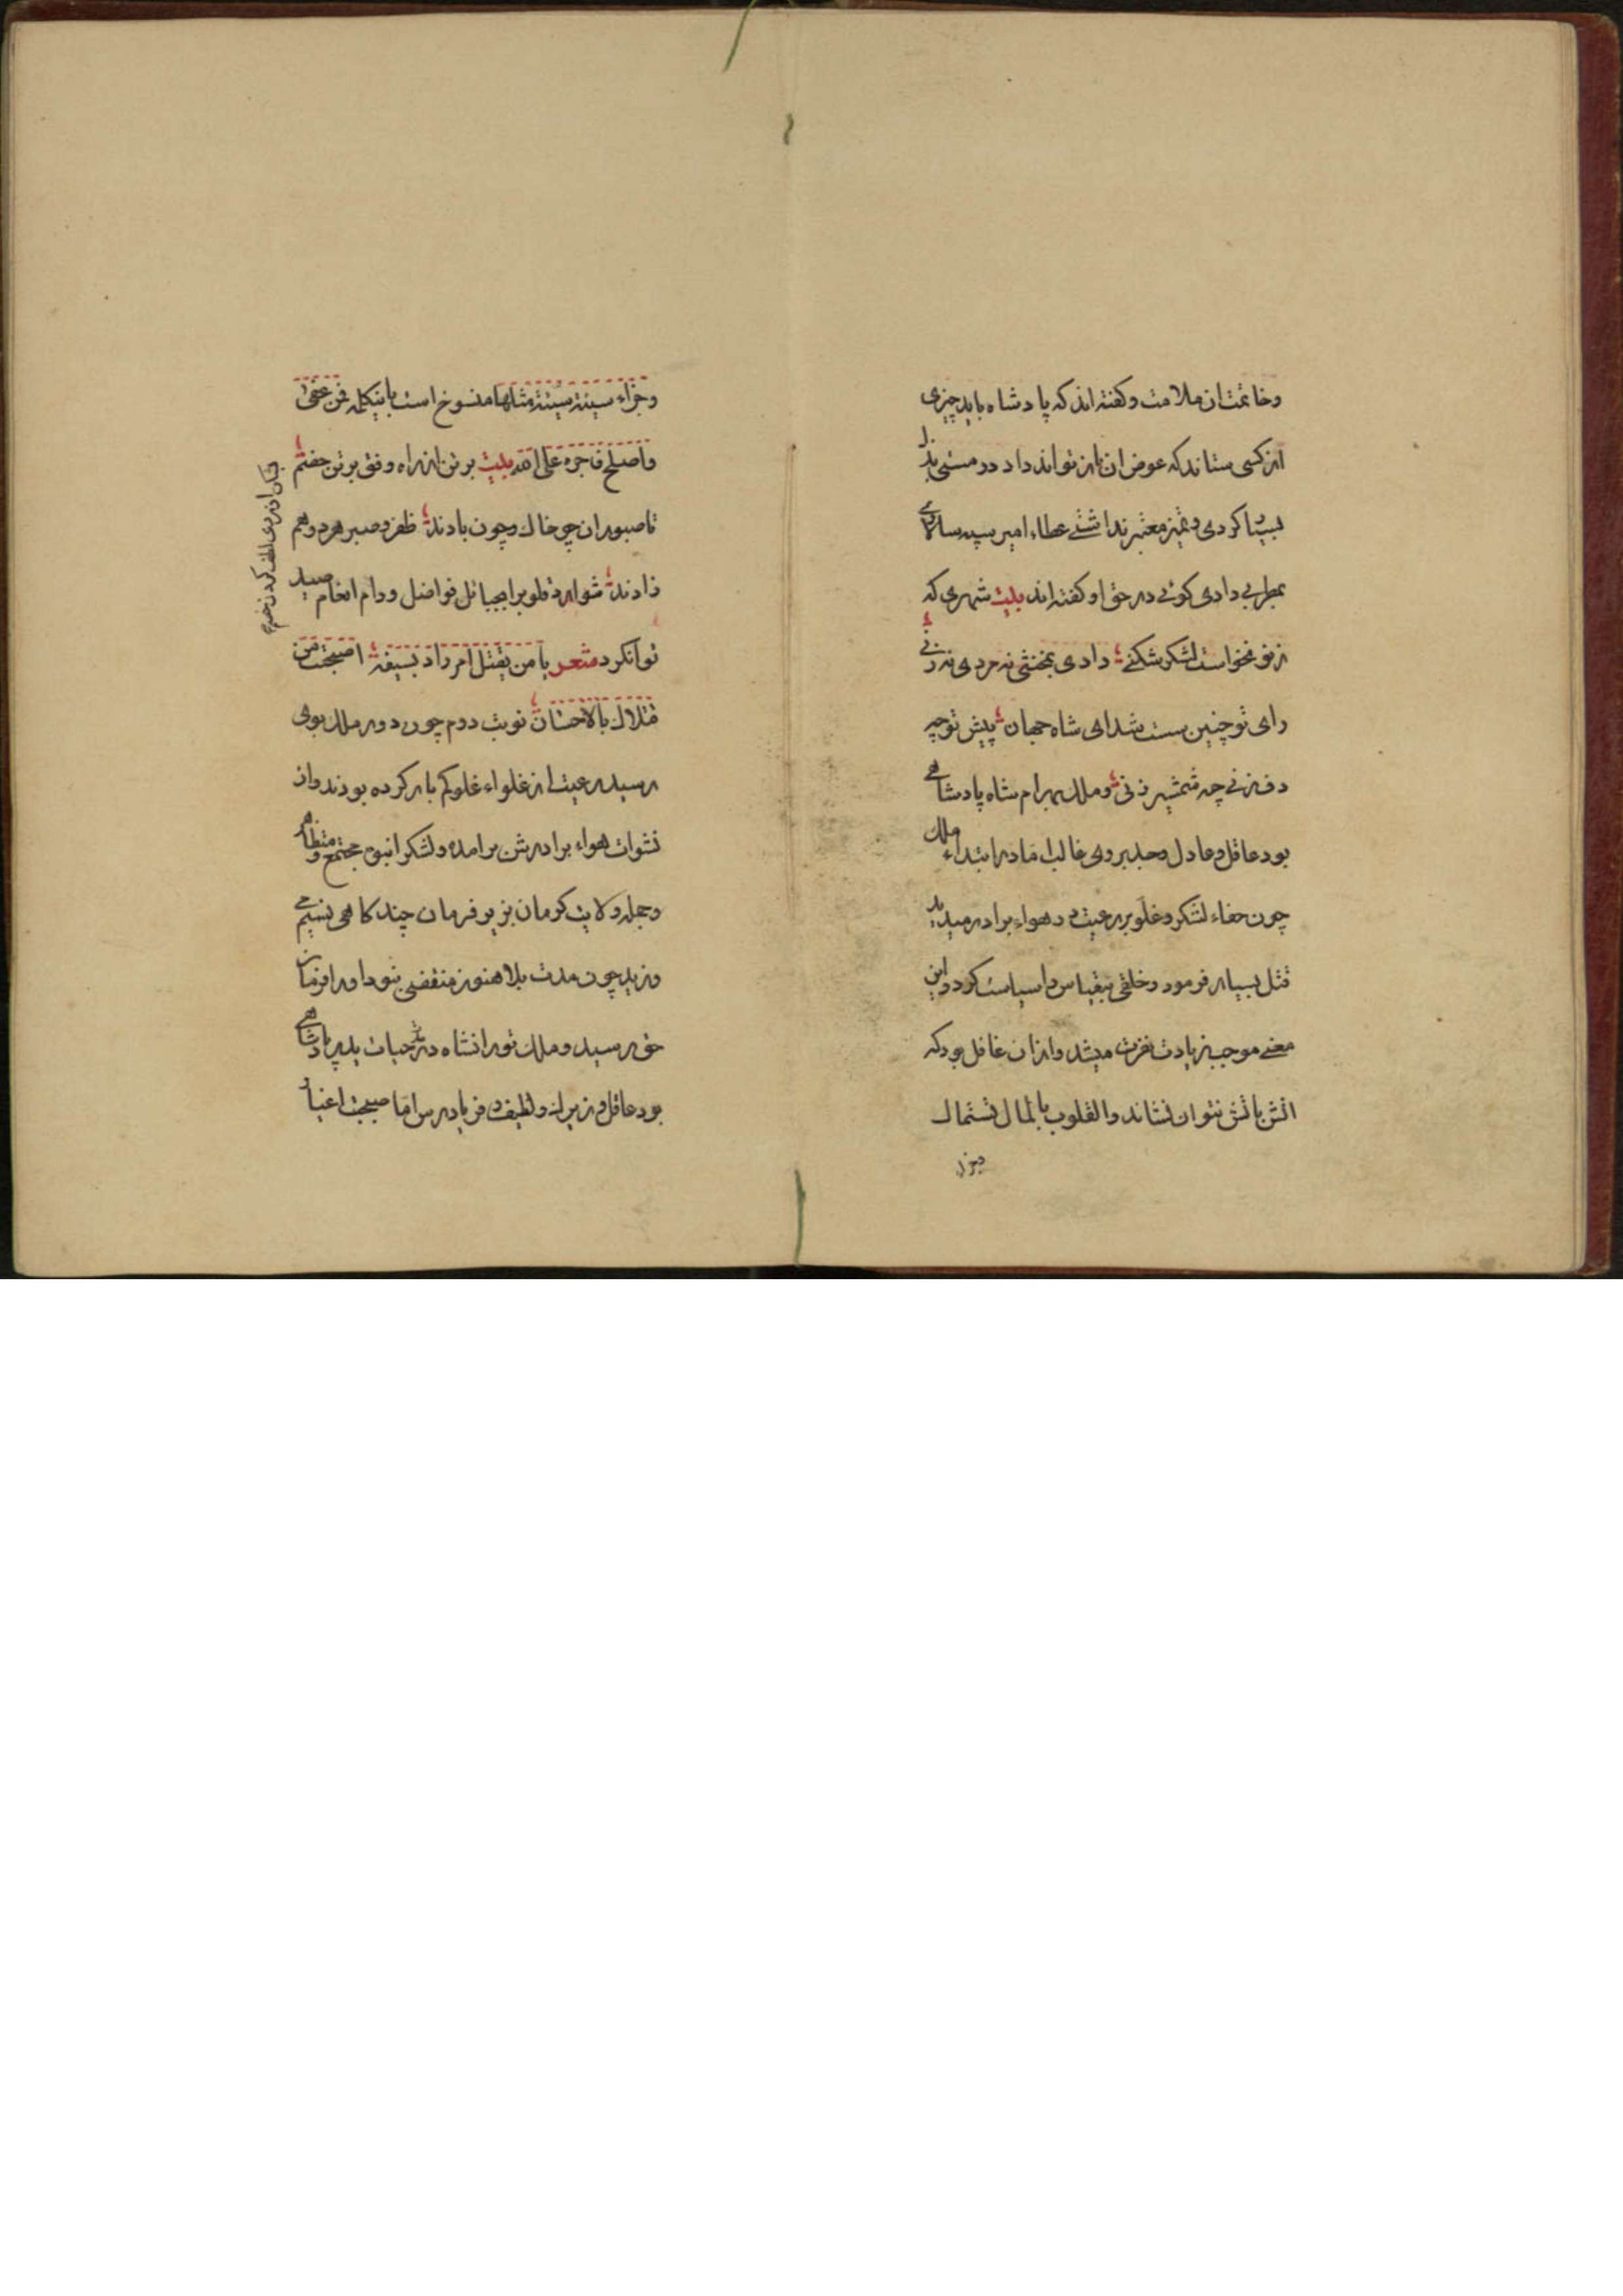 وخاتمت ان ملامت وکفته اند که پادشاه باید چیزی
از کسی ستاند که عوض ان باز تواند داد در مستی بذل
بسیار کردی و تمیز معتبر نداشتی عطاء امیر سپه سالاری
بمطربی دادی کوئی در حق او کفته اند بیت شهری که
ز تو نخواست لشکر شکنی دادی بمخنثی نه مردی نه زنی
رای تو چنین سست شد ای شاه جهان پیش تو چه
دف زنی چه شمشیر زنی و ملک بهرام شاه پادشاهی
بود عاقل و عادل وجد بر وی غالب اما در ابتداء ملک
چون جفاء لشکر و غلو بر رعیت و هواء برادر میدید
قتل بسیار فرمود و خلقی بیقیاس را سیاست کرد و این
معنی موجب زیادت نفرت میشد و ازان غافل بود که
اتش باتش نتوان نشاند والقلوب بالمال تستمال
وجزاء سیئة سیئة مثلها منسوخ است باین کلمه فمن عفی
واصلح فاجره علی الله بیت برتن از راه وفق برتن جفتم
تا صبوران چو خاک و چون بادند ظفر و صبر هر دو هم
زادند شوارد قلوب را بحبائل فواضل و دام انعام صید
توانکرد شعر یا من یقتل امراد بسیفه اصبحت من
قتلاک بالاحسان نوبت دوم چون دور ملک بوی
رسید رعیت از غلواء غلو کم باز کرده بودند و از
نشوات هواء برادرش برامده و لشکر انبوه مجتمع و متظاهر
وجمله ولایت کرمان بزیر فرمان چند کاهی نسیمی
وزید چون مدت بلا هنوز منقضی نبود او را فرمان
حق رسید و ملک تورانشاه در حیات پدر پادشاهی
بود عاقل و زیرک و لطیف و فریادرس اما صیحت اغیار